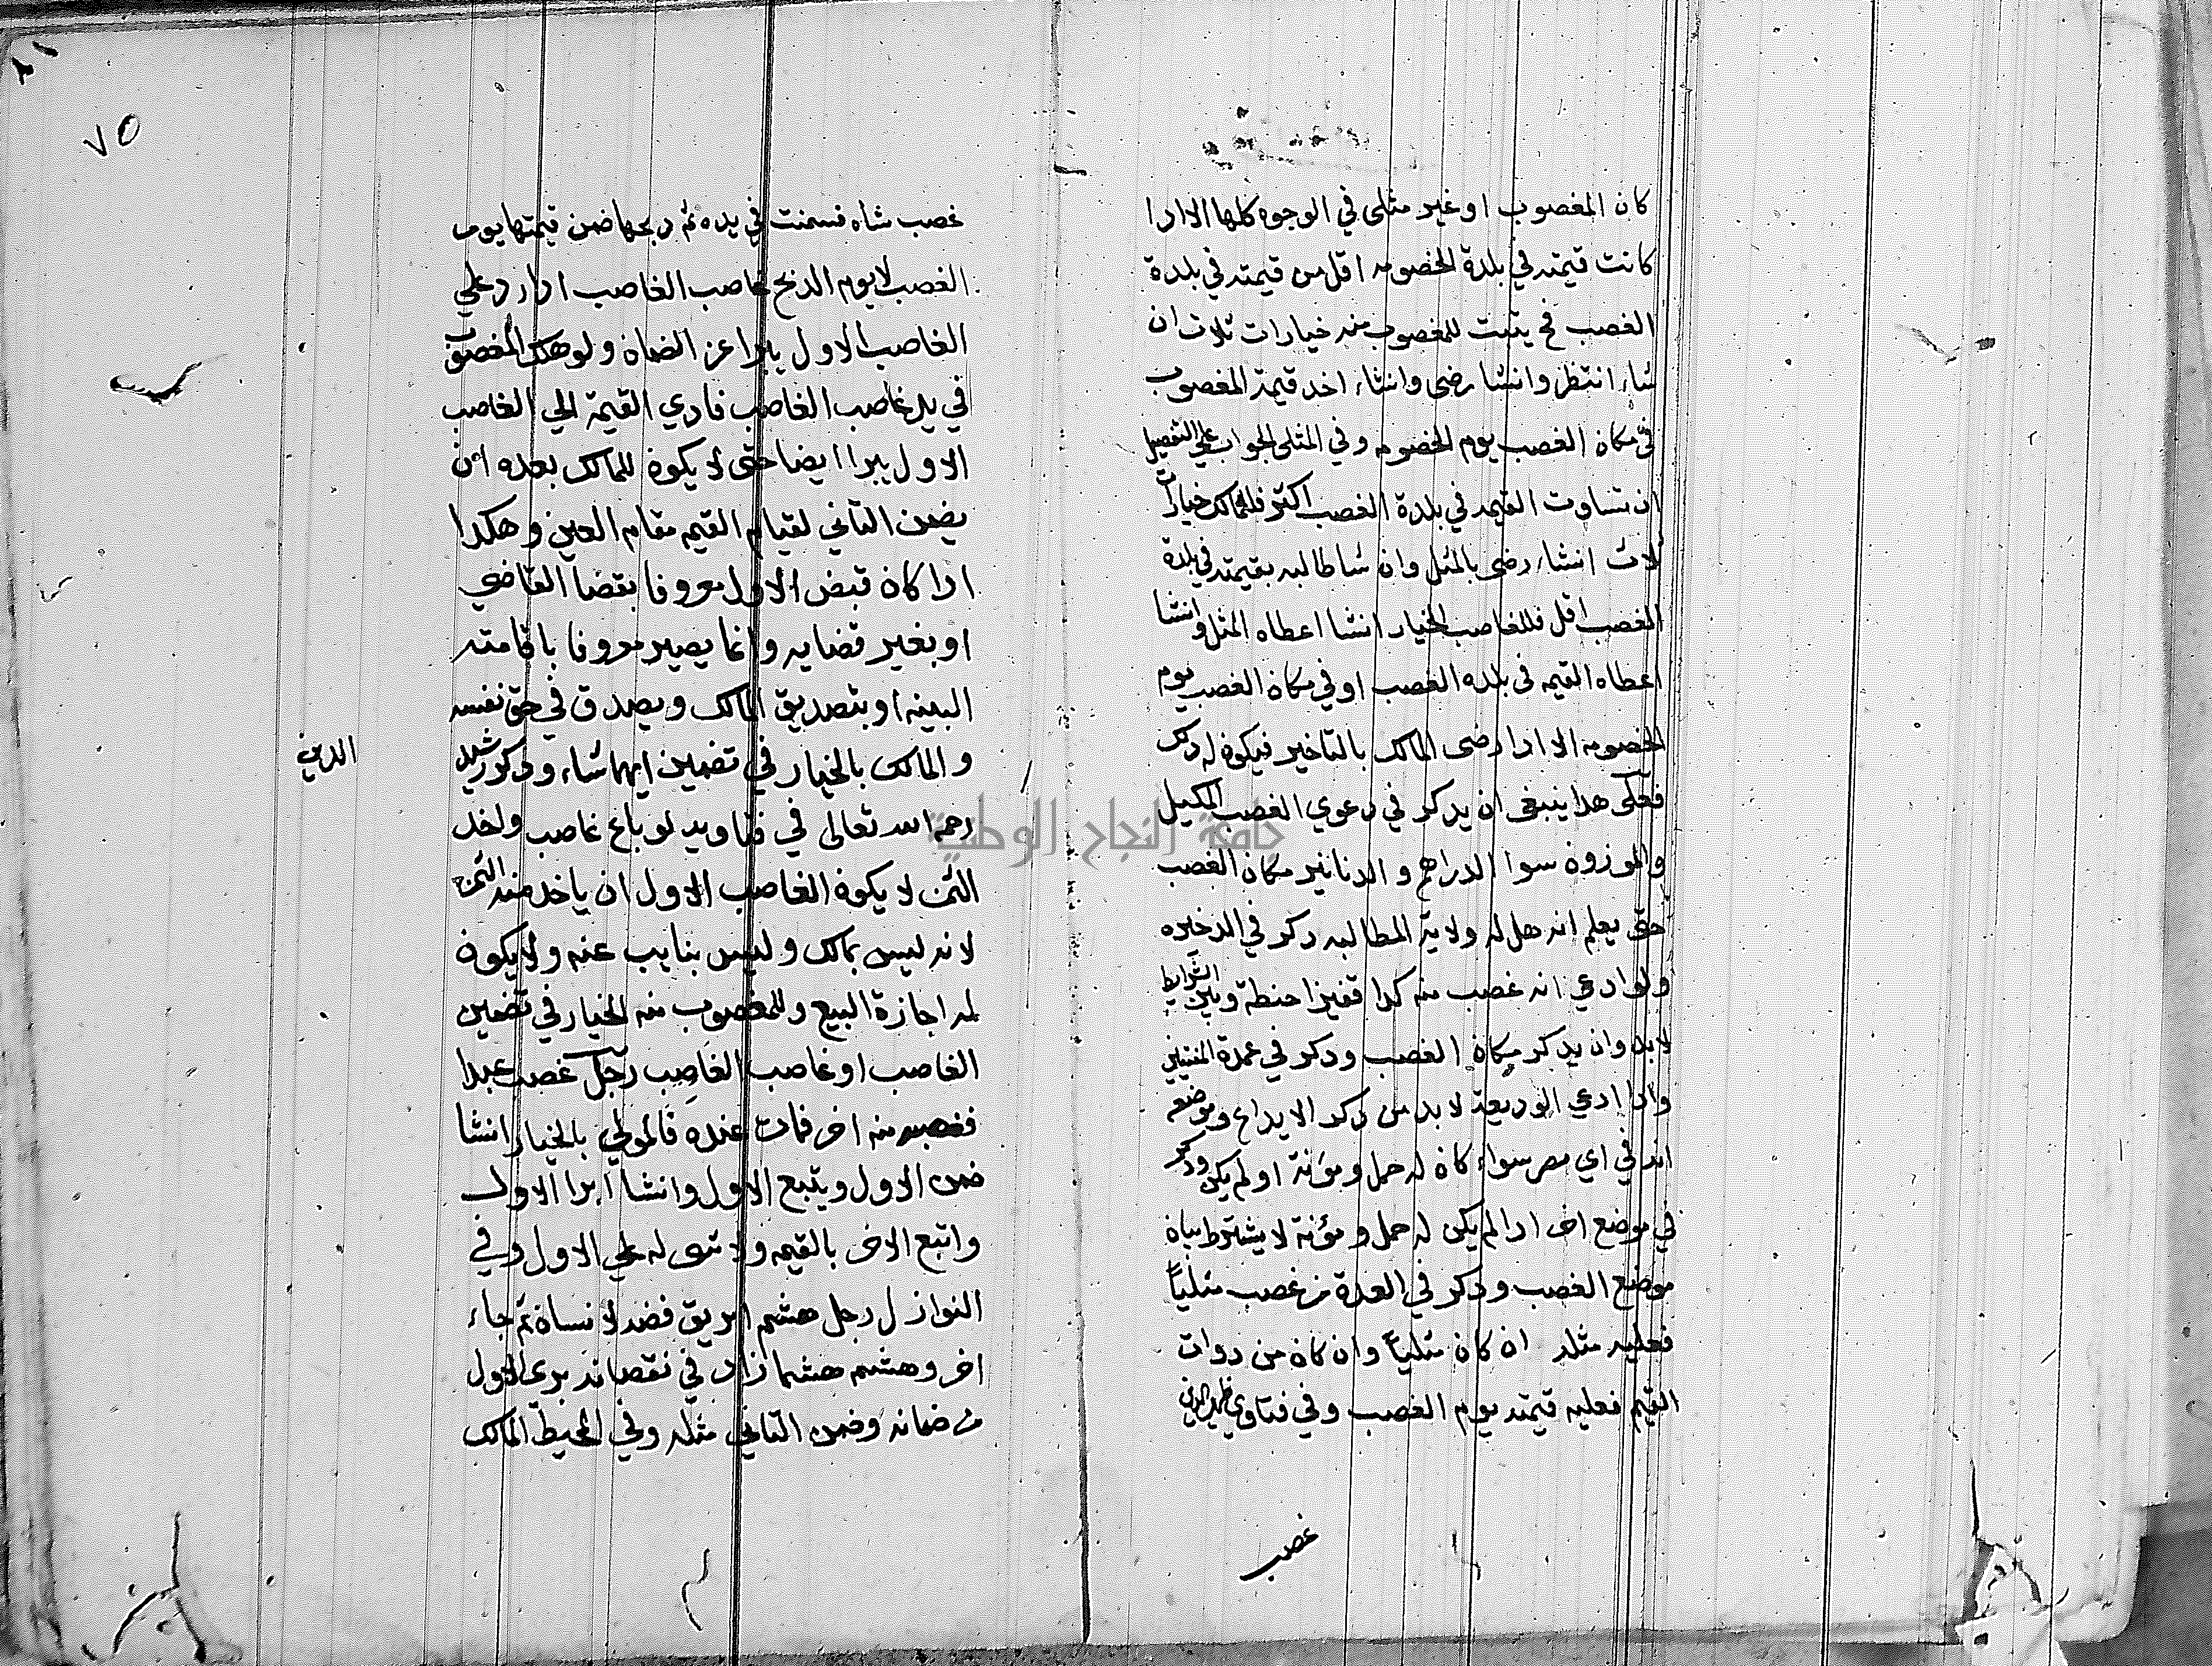 كان المغصوب او غير مثلى في الوجوه كلها الا ادا
كانت قيمته في بلدة الخصومه اقل من قيمته في بلدة
الغصب فح يتبت للمغصوب منه خيارات ثلاث ان
شاء انتظر وانشا رضى وانشاء اخد قيمة المغصوب
في مكان الغصب يوم الخصومه وفي المثلى الجواب على التفصيل
ان تساوت القيمه في بلدة الغصب اكثر فللمالك خيارات
ثلاث انشاء رضى بالمثل وان شا طالبه بقيمته في بلدة
الغصب اقل فللغاصب الخيار انشا اعطاه المثل وانشا
اعطاه القيمه في بلده الغصب او في مكان الغصب يوم
الخصومه الا ادا رضى المالك بالتاخير فيكون له دكر
فعلى هدا ينبغى ان يدكر في دعوي الغصب المكيل
والموزون سوا الدراهم والدنانير مكان الغصب
حتى يعلم انه هل له ولاية المطالبه دكر في الدخيره
ولو ادعي انه غصب منه كدا قفيزا حنطة وبين الشرايط
لابد وان يدكر مكان الغصب ودكر في عمدة المفتين
وادا ادعي الوديعة لا بد من دكر الايداع وموضعه
انه في اي مصر سواء كان له حمل ومؤنة او لم يكن ودكر
في موضع اخر ادا لم يكن له حمل ومؤنة لا يشترط بيان
موضع الغصب ودكر في العدة من غصب مثليًا
فعليه مثله ان كان مثليًا وان كان من دوات
القيم فعليه قيمته يوم الغصب وفي فتاوي ظهير الدين
غصب
٧٥
غصب شاه فسمنت في يده ثم دبحها ضمن قيمتها يوم
الغصب لا يوم الدبح غاصب الغاصب ادا رد علي
الغاصب الاول يبرا عن الضمان ولو هلك المغصوب
في يد غاصب الغاصب فادي القيمة الي الغاصب
الاول يبرا ايضا حتى لا يكون للمالك بعده ان
يضمن الثاني لقيام القيم مقام العين وهكدا
ادا كان قبض الاول معروفا بقضا القاضي
او بغير قضايه وانما يصير معروفا باقامته
البينه او بتصديق المالك ويصدق في حق نفسه
والمالك بالخيار في تضمين ايهما شاء ودكر رشيد
الدين
رحمه الله تعالى في فتاويه لو باع غاصب واخد
الثمن لا يكون الغاصب الاول ان ياخد منه الثمن
لانه ليس بمالك وليس بنايب عنه ولا يكون
له اجازة البيع وللمغصوب منه الخيار في تضمين
الغاصب او غاصب الغاصب رجل غصب عبدا
فغصبه منه اخر فمات عنده فالمولي بالخيار انشا
ضمن الاول ويتبع الاول وانشا ابرا الاول
واتبع الاخر بالقيمه ولا شى له علي الاول وفي
النوازل رجل هشم ابريق فضه لانسان ثم جاء
اخر وهشمه هشما زاد في نقصانه برى الاول
من ضمانه وضمن الثاني مثله وفي المحيط المالك
جامعة النجاح الوطنية